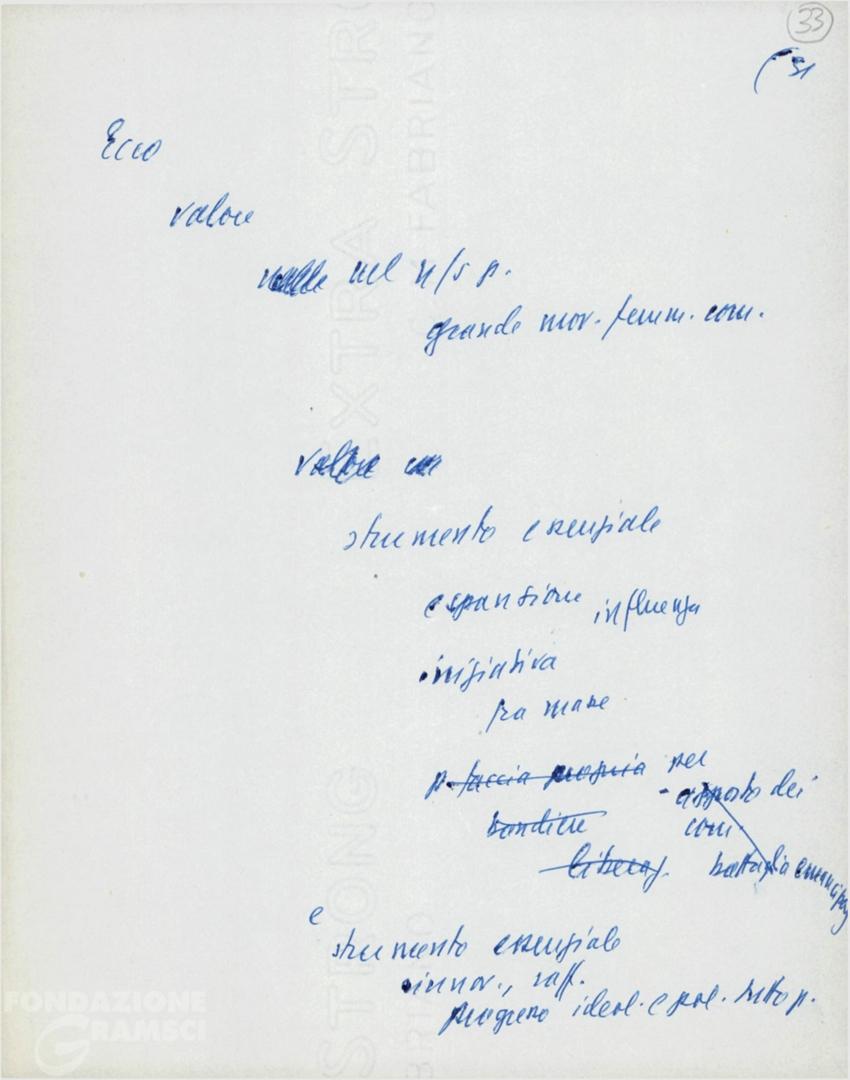 33
(31
Ecco
valore
nel n/s p.
grande mov. femm. com.
valore
strumento essenziale
espansione influenza
iniziativa
fra masse
p. faccia propria per
apporto dei
bandiere com.
liberaz. battaglia emancipaz
e
strumento essenziale
innov., raff.
progresso ideol. e pol. tutto p.
EXTRA STRONG
FABRIANO
FONDAZIONE
GRAMSCI